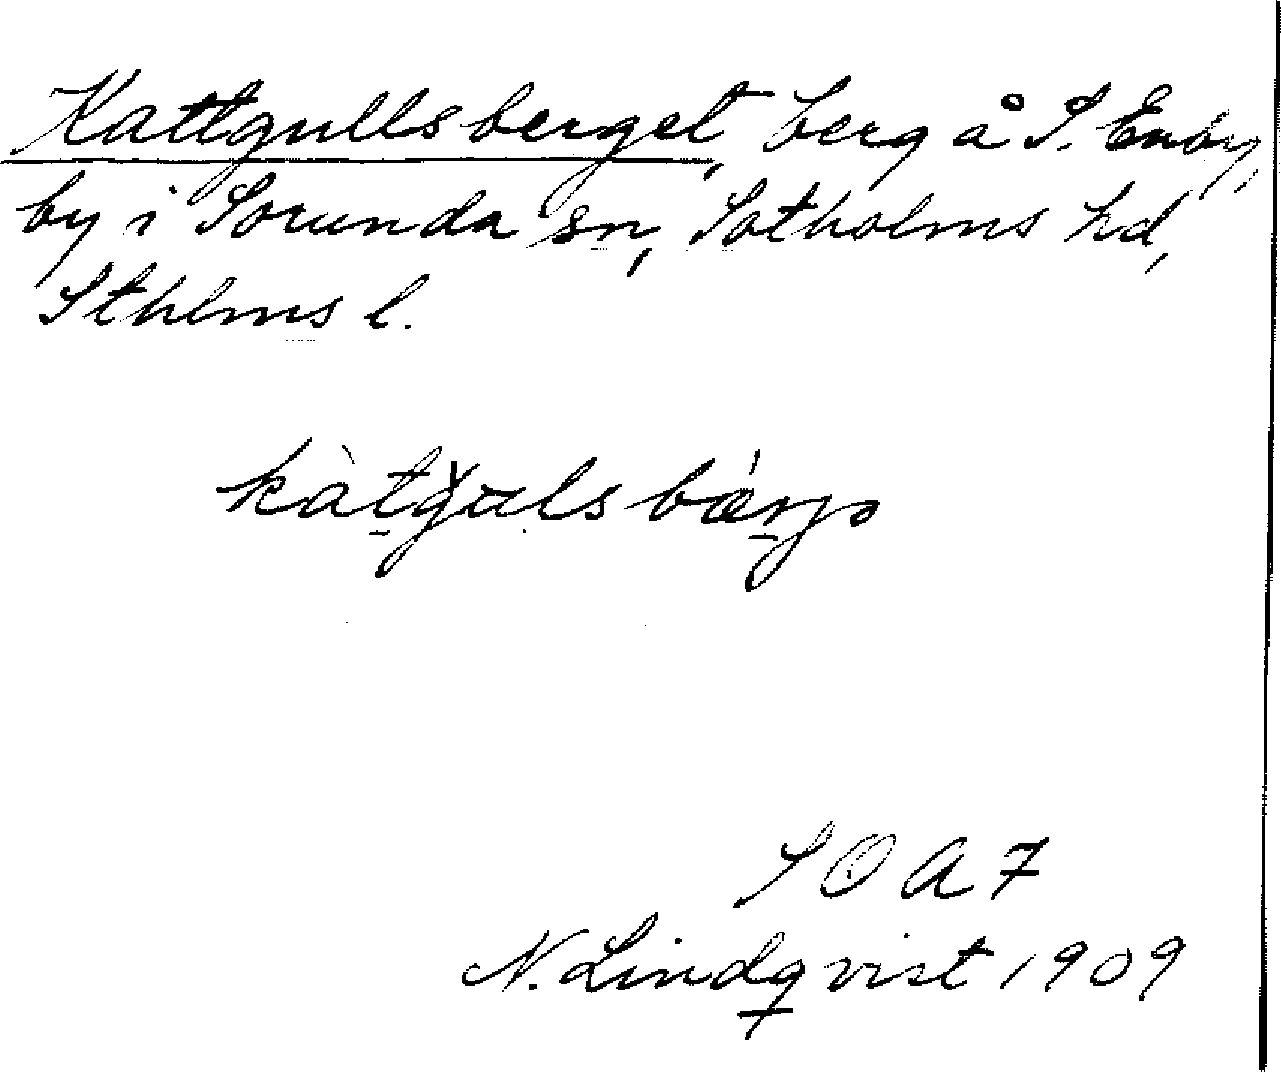 Kattgullsberget, berg å S. Enby,
by i Sorunda sn, Sotholms hd,
Sthlms l.
SOA 7
N. Lindqvist 1909